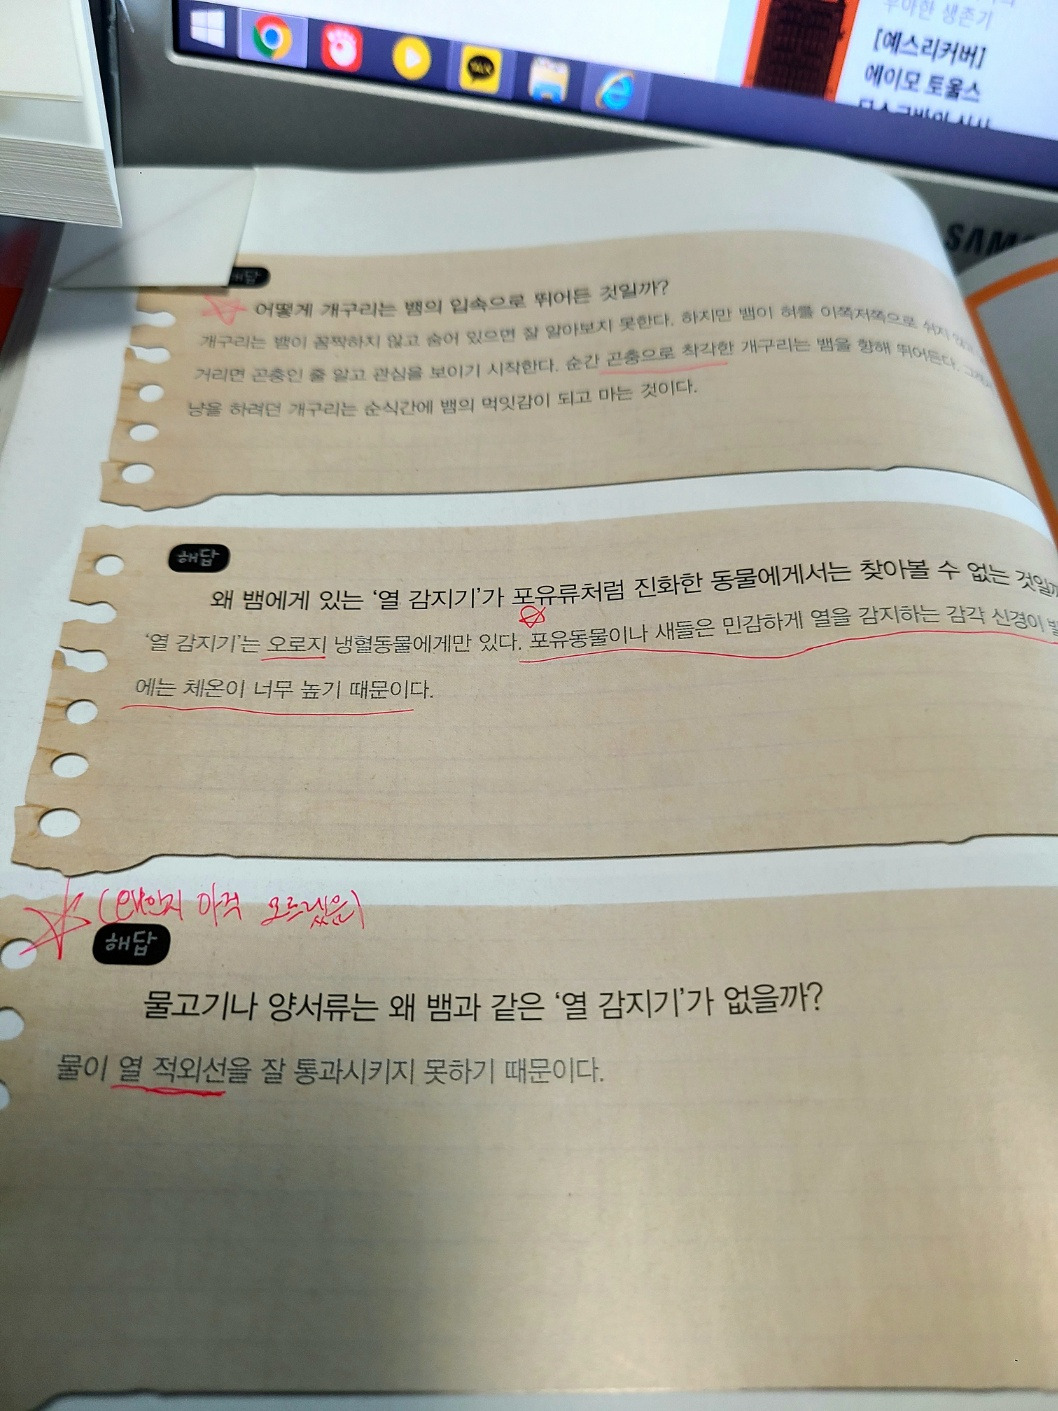 우아한 생존기
[예스리커버]
에이모 토울스
TALK
SAM
해답
어떻게 개구리는 뱀의 입속으로 뛰어든 것일까?
개구리는 뱀이 꼼짝하지 않고 숨어 있으면 잘 알아보지 못한다. 하지만 뱀이 혀를 이쪽저쪽으로
거리면 곤충인 줄 알고 관심을 보이기 시작한다. 순간 곤충으로 착각한 개구리는 뱀을 향해 뛰어든다.
냥을 하려던 개구리는 순식간에 뱀의 먹잇감이 되고 마는 것이다.
해답
왜 뱀에게 있는 ‘열 감지기’가 포유류처럼 진화한 동물에게서는 찾아볼 수 없는 것일까
‘열 감지기’는 오로지 냉혈동물에게만 있다. 포유동물이나 새들은 민감하게 열을 감지하는 감각 신경이
에는 체온이 너무 높기 때문이다.
(왜인지 아직 모르겠음)
해답
물고기나 양서류는 왜 뱀과 같은 ‘열 감지기’가 없을까?
물이 열 적외선을 잘 통과시키지 못하기 때문이다.